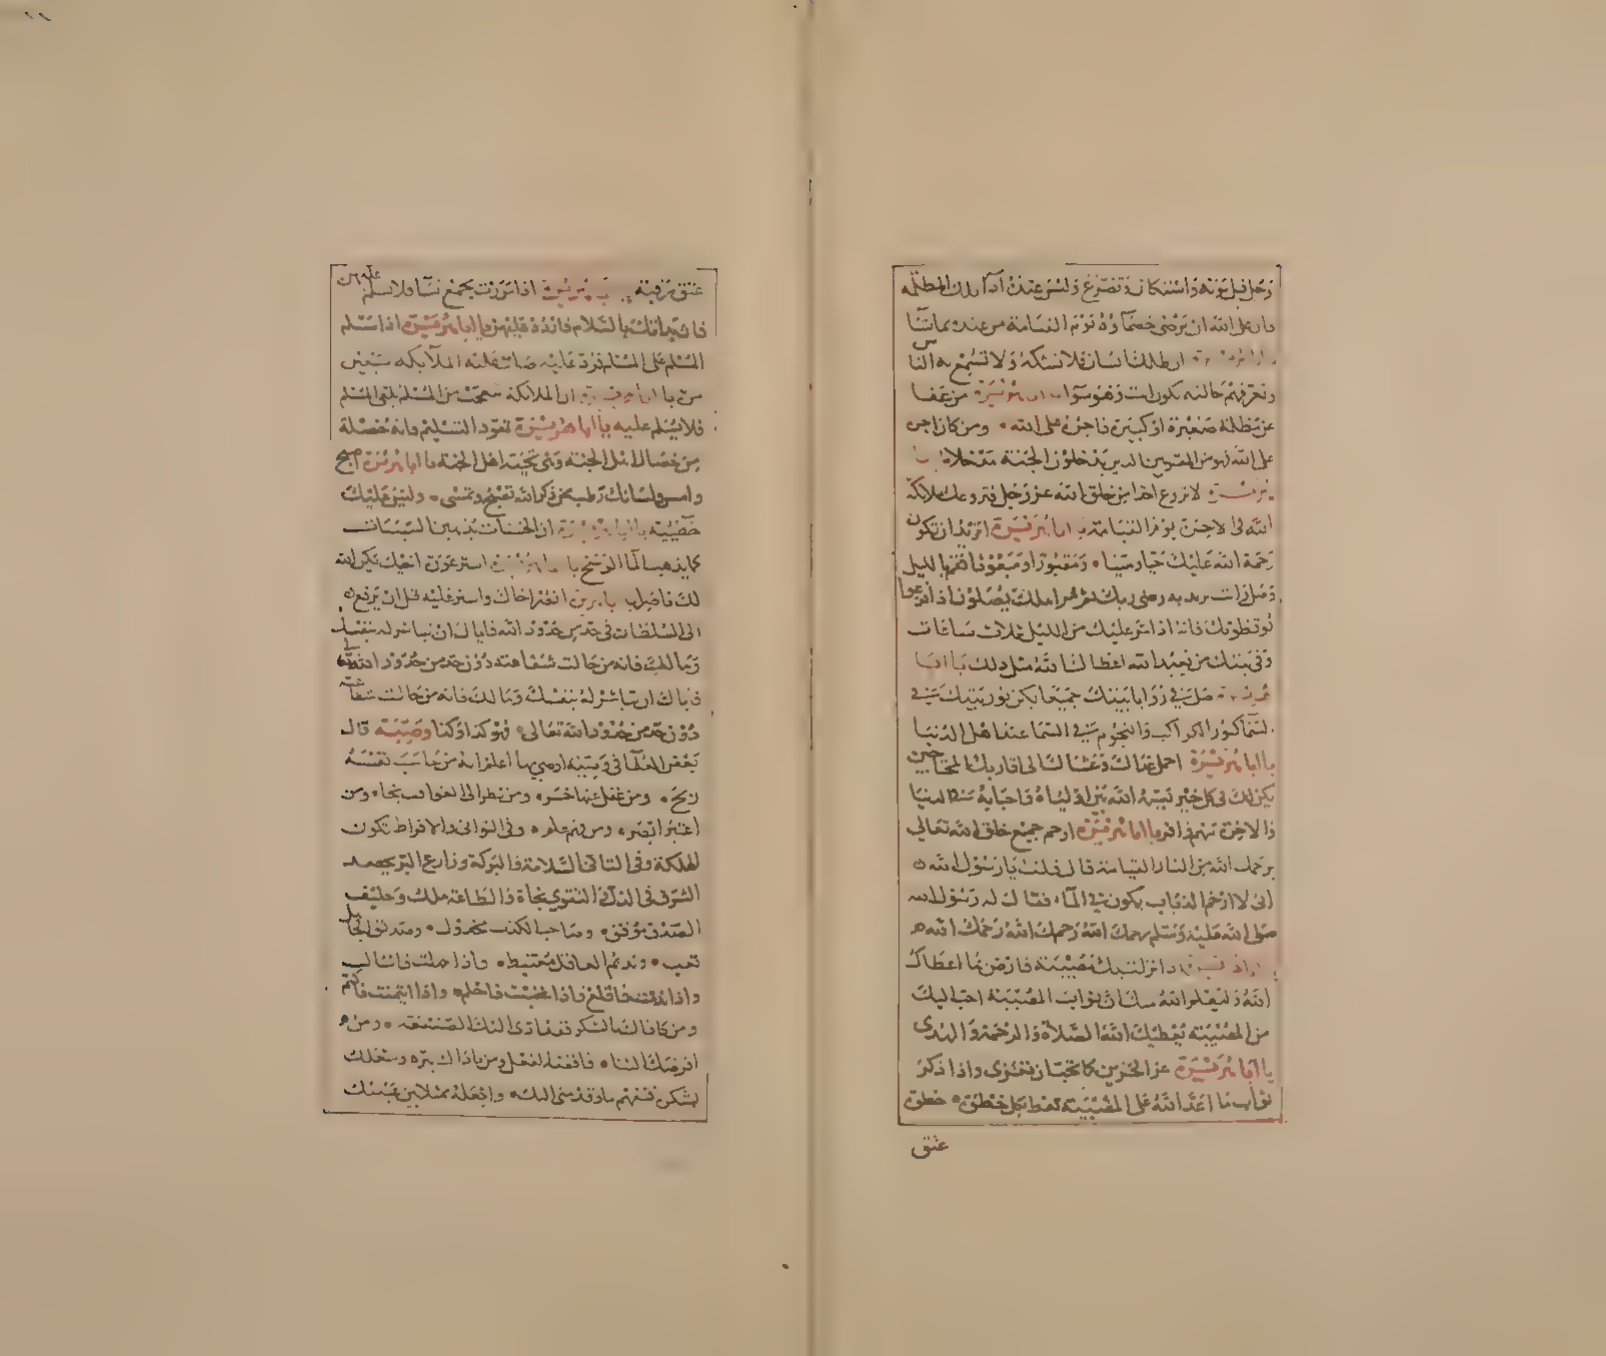 وجل قبل موته واستكان وتضرع وليس عنده أداء تلك المظلمة
كان على الله ان يرضي خصماؤه يوم القيامة من عنده بما شا
ان ظلمك انسان فلا تشكه ولا تسمع به الناس
وتعرفهم حاله تكون انت وهو سوا يا ابا هريرة من عفا
عن مظلمة صغيرة او كبيرة فاجره على الله ومن كان اجره
على الله فهو من المقربين الذين يدخلون الجنة مدخلا يا
هريرة لا تروع احدا من خلق الله عز وجل فتروعك ملائكة
الله في الاخرة يوم القيامة يا ابا هريرة اتريد ان تكون
رحمة الله عليك حيا وميتا ومقبورا ومبعوثا فقم بالليل
وصل وانت تريد به رضى ربك ومر اهلك يصلون اذا
توقظونك فانه اذا مر عليك من الليل ثلاث ساعات
وفي بيتك من يعبد الله اعطاك الله مثل ذلك يا ابا
هريرة صل في زوايا بيتك جميعا يكن نور بيتك في
السما كنور الكواكب والنجوم في السما عند اهل الدنيا
يا ابا هريرة احمل غداك وعشاك الى اقاربك المحتاجين
يكن لك في كل خير نبيه الله بين اوليائه واحبابه الدنيا
والاخرة يا ابا هريرة ارحم جميع خلق الله تعالى
يرحمك الله من النار القيامة قال قلت يا رسول الله
اني لارحم الذباب يكون في الماء فقال له رسول الله
صلى الله عليه وسلم رحمك الله رحمك الله رحمك الله
اذا نزلت بك مصيبة فارض بما اعطاك
الله وليعلم الله منك ان ثواب المصيبة احب اليك
من المصيبة يعطيك الله الصلاة والرحمة والهدى
يا ابا هريرة عز الحزين كما تحب ان تعزى واذا ذكر
ثواب ما اعد الله على المصيبة تعط بكل خطوة خطوة
عتق
عتق رقبة يا ابا هريرة اذا مررت بجمع نسا فلا تسلم عليهن
فان بدانك بالسلام فاردد عليهن يا ابا هريرة اذا سلم
المسلم على المسلم فرد عليه صلت عليه الملائكة سبعين
مرة يا ابا هريرة ان الملائكة تتعجب من المسلم يلقى المسلم
فلا يسلم عليه يا ابا هريرة تعود التسليم فانه خصلة
من خصال اهل الجنة وهي تحية اهل الجنة يا ابا هريرة اصبح
وامس ولسانك رطب من ذكر الله تصبح وتمسي وليس عليك
خطيئة يا ابا هريرة ان الحسنات يذهبن السيئات
كما يذهب الما الوسخ يا ابا هريرة استر عورة اخيك يكن الله
لك ناصرا يا هريرة انصر اخاك واستر عليه قبل ان يرفع
الى السلطان في حد من حدود الله فاياك ان تباشر له بنفسك
ومالك فانه من حالت شفاعته دون حد من حدود الله
فاياك ان تباشر له بنفسك ومالك فانه من حالت شفاعته
دون حد من حدود الله تعالى فهو كذا وكذا وصيبة قال
بعض العلما في وصيته اوصي بها اعلم انه من حاسب نفسه
ربح ومن غفل عنها خسر ومن نظر الى العواقب نجا ومن
اعتبر ابصر ومن فهم علم وفي التواني والافراط تكون
الهلكة وفي التاني السلامة والبركة وزارع البر يحصد
الشرف في الدنى التقوي نجاة والطاعة ملك وحليف
الصدق موفق وصاحب الكذب مخذول وصديق الجاهل
تعب ونديم العاقل مغتبط واذا جهلت فاسال
واذا ندمت فاقلع فاذا غضبت فاحلم واذا ايتمنت فاكتم
ومن كافاك بالشكر فقد ادى اليك الصنيعة ومن
اقرضك الثنا فاقضه الفعل ومن باداك ببره وشغلك
بشكره فتفهم ما وقد مني اليك واجعله ممثلا بين عينيك